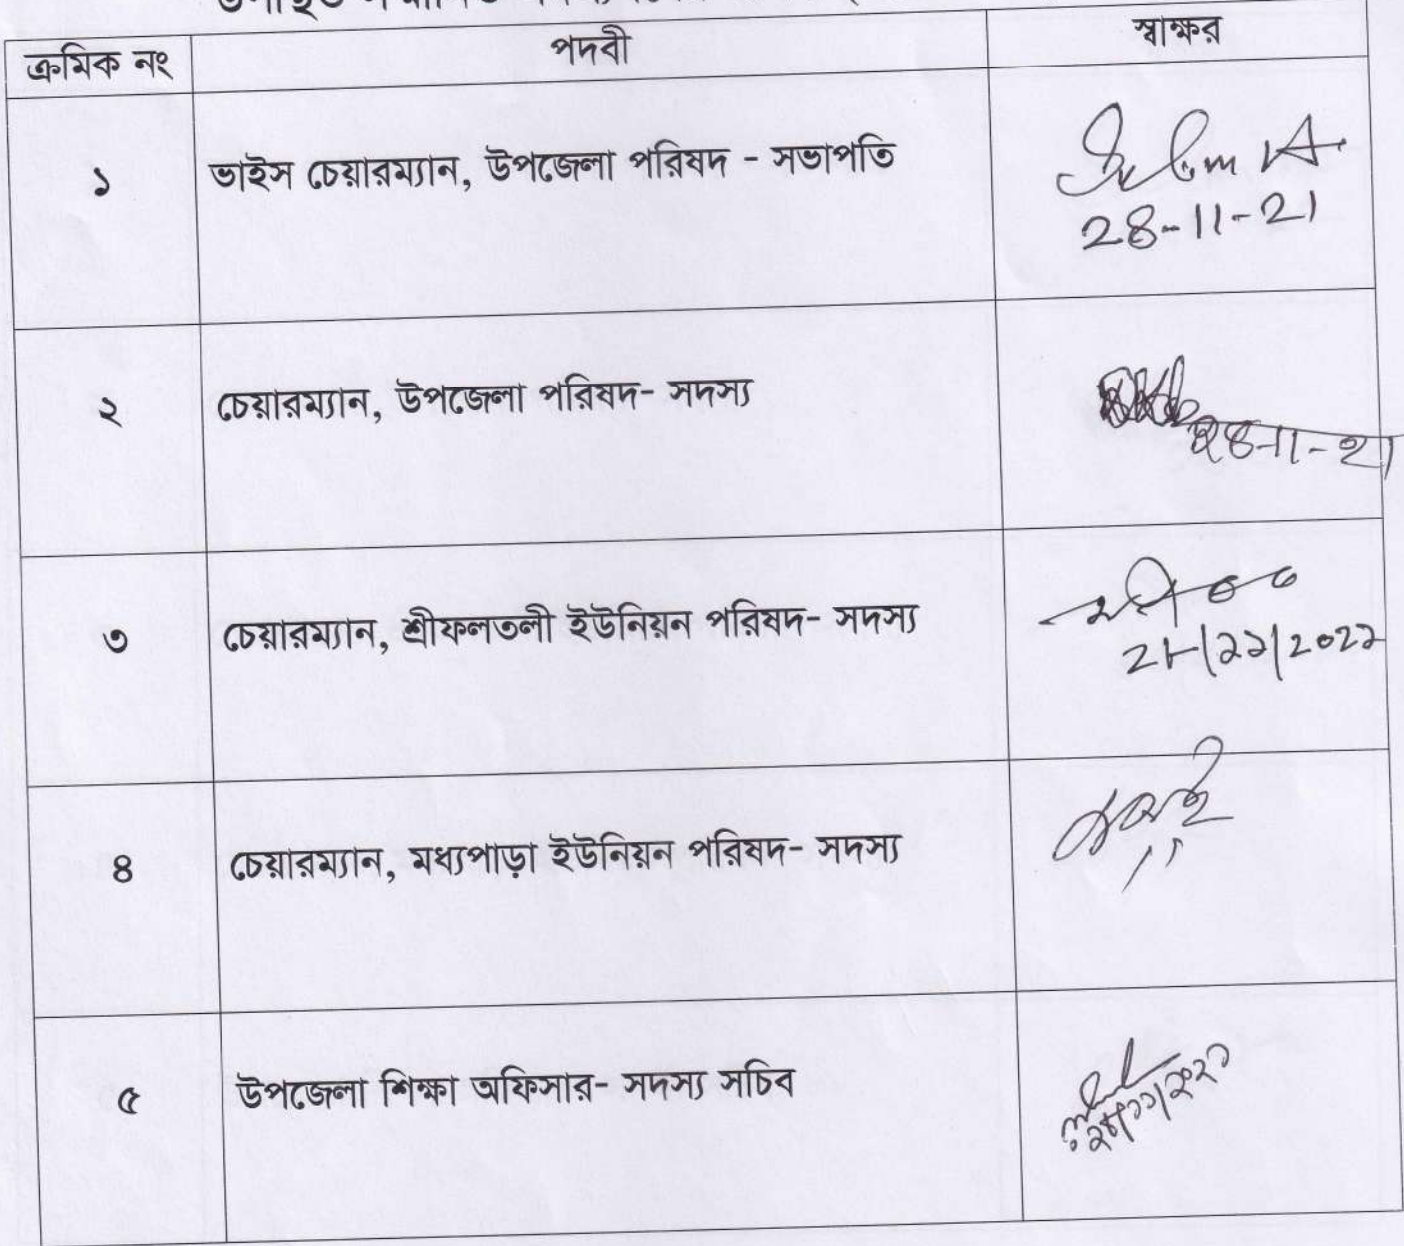 ক্রমিক নং পদবী স্বাক্ষর
১ ভাইস চেয়ারম্যান, উপজেলা পরিষদ - সভাপতি
28-11-21
২ চেয়ারম্যান, উপজেলা পরিষদ- সদস্য
28-11-21
৩ চেয়ারম্যান, শ্রীফলতলী ইউনিয়ন পরিষদ- সদস্য
২৮/১১/২০২১
৪ চেয়ারম্যান, মধ্যপাড়া ইউনিয়ন পরিষদ- সদস্য
৫ উপজেলা শিক্ষা অফিসার- সদস্য সচিব
২৮/১১/২০২১